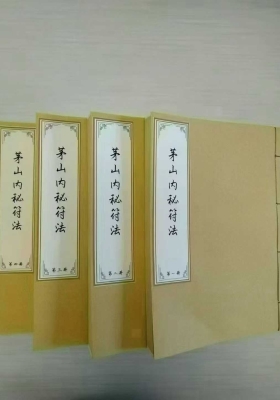 茅山内秘符法
第一册
茅山内秘符法
第二册
茅山内秘符法
第三册
茅山内秘符法
第四册